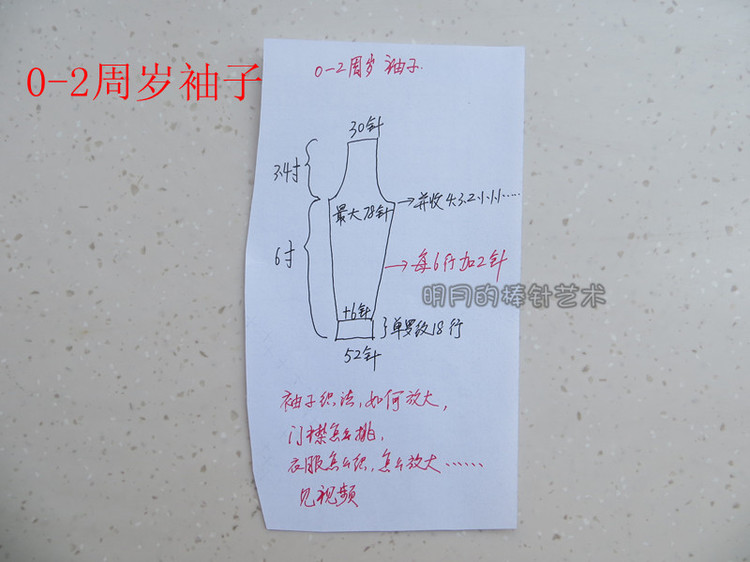 0-2周岁袖子
0-2周岁 袖子.
30针
3.4寸
最大78针
→并收4.3.2.1.1.1.1……
6寸
→每6行加2针
明月的棒针艺术
+6针
单罗纹18行
52针
袖子织法,如何放大,
门襟怎么挑,
衣服怎么织,怎么放大……
见视频